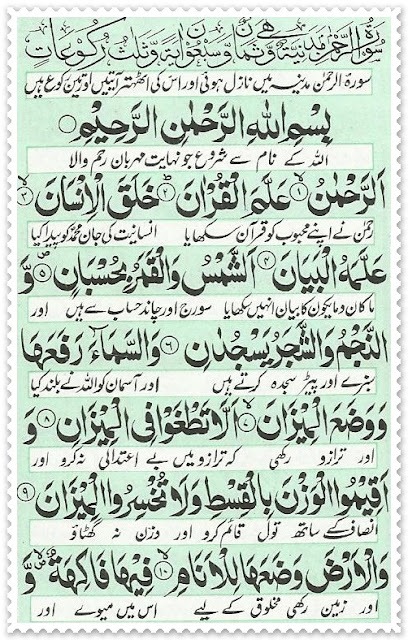 سورۃ الرحمن مدنیۃ وھی ثمان وسبعون ایۃ وثلث رکوعات
سورۃ الرحمٰن مدینہ میں نازل ہوئی اور اس کی اٹھتر آیتیں اور تین رکوع ہیں
بِسْمِ اللّٰهِ الرَّحْمٰنِ الرَّحِيْمِ
اللہ کے نام سے شروع جو نہایت مہربان رحم والا
اَلرَّحْمٰنُ ۙ﴿۱﴾ عَلَّمَ الْقُرْاٰنَ ؕ﴿۲﴾ خَلَقَ الْاِنْسَانَ ۙ﴿۳﴾
رحمٰن نے اپنے محبوب کو قرآن سکھایا انسانیت کی جان محمد کو پیدا کیا
عَلَّمَهُ الْبَيَانَ ﴿۴﴾ اَلشَّمْسُ وَالْقَمَرُ بِحُسْبَانٍ ۪﴿۵﴾ وَّ
ماکان ومایکون کا بیان انہیں سکھایا سورج اور چاند حساب سے ہیں اور
النَّجْمُ وَالشَّجَرُ يَسْجُدٰنِ ﴿۶﴾ وَالسَّمَآءَ رَفَعَهَا
سبزے اور پیڑ سجدہ کرتے ہیں اور آسمان کو اللہ نے بلند کیا
وَوَضَعَ الْمِيْزَانَ ۙ﴿۷﴾ اَلَّا تَطْغَوْا فِي الْمِيْزَانِ ﴿۸﴾ وَ
اور ترازو رکھی کہ ترازو میں بے اعتدالی نہ کرو اور
اَقِيْمُوا الْوَزْنَ بِالْقِسْطِ وَلَا تُخْسِرُوا الْمِيْزَانَ ﴿۹﴾
انصاف کے ساتھ تول قائم کرو اور وزن نہ گھٹاؤ
وَالْاَرْضَ وَضَعَهَا لِلْاَنَامِ ۙ﴿۱۰﴾ فِيْهَا فَاكِهَةٌ ۪ۙ وَّ
اور زمین رکھی مخلوق کے لیے اس میں میوے اور